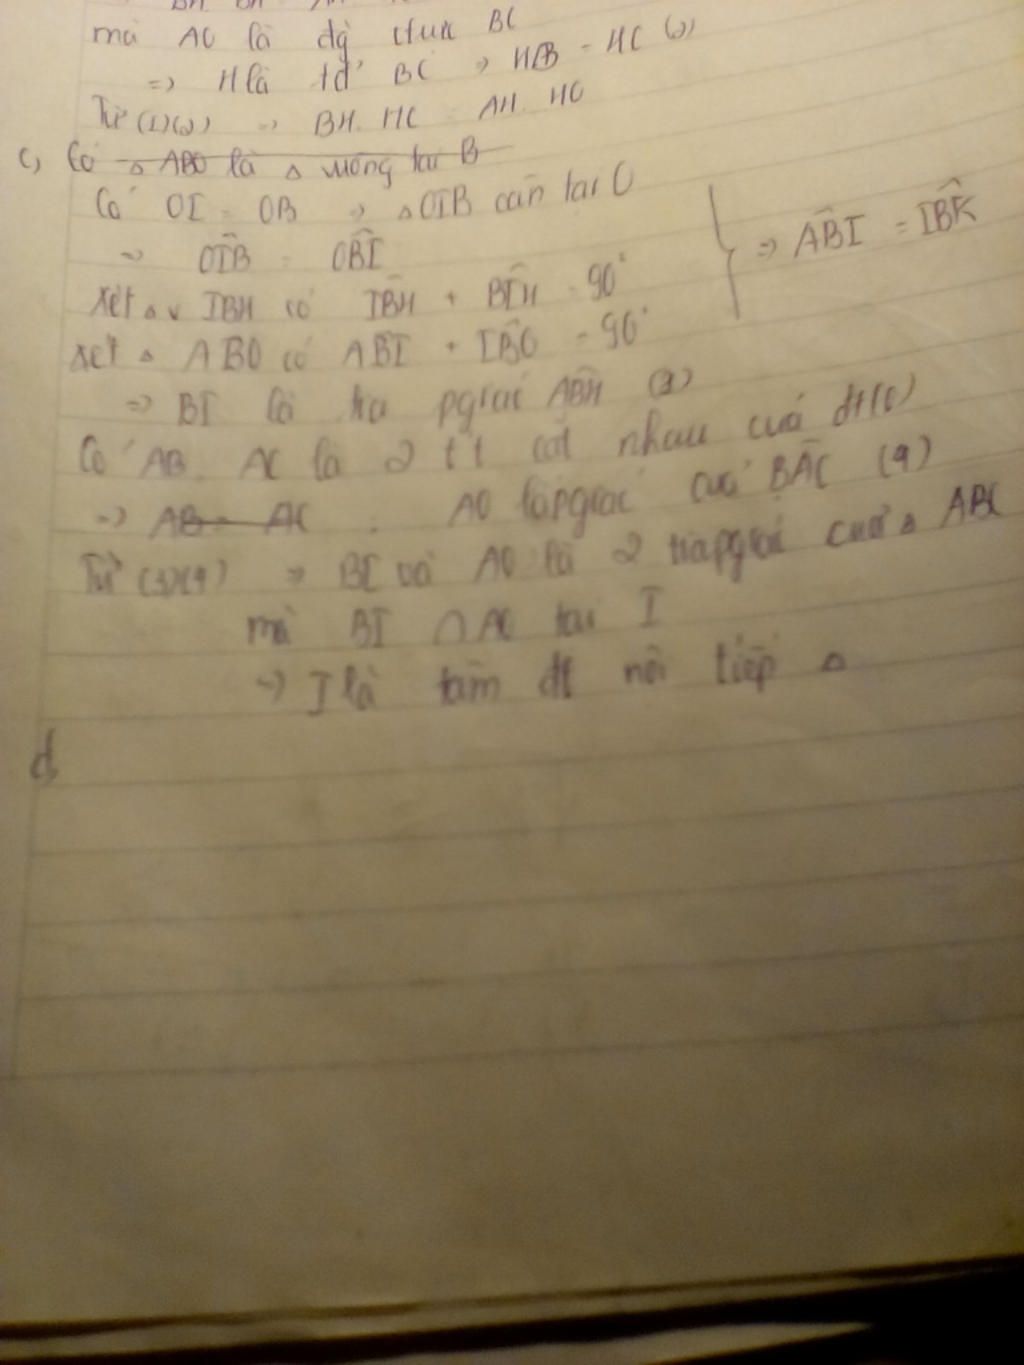 mà AO là đg
⇒ H là tđ BC ⇒ HB = HC (2)
Từ (1)(2) ⇒ BH. HC = AH. HO
c, Có △ ABO là △ vuông tại B
Có OI = OB ⇒ △OIB cân tại O
⇒ OÎB = OB̂I
Xét △v IBH có IB̂H + BÎH = 90°
Xét △ ABO có AB̂I + IB̂O = 90°
⇒ AB̂I = IB̂K
⇒ BI là tia pgiác AB̂H (3)
Có AB, AC là 2 tt cắt nhau của
⇒ AB = AC. AO là pgiác của BÂC (4)
Từ (3)(4) ⇒ BI và AO là 2 tia pgiác của △ ABC
mà BI ∩ AO tại I
⇒ I là tâm đt nội tiếp △
d,